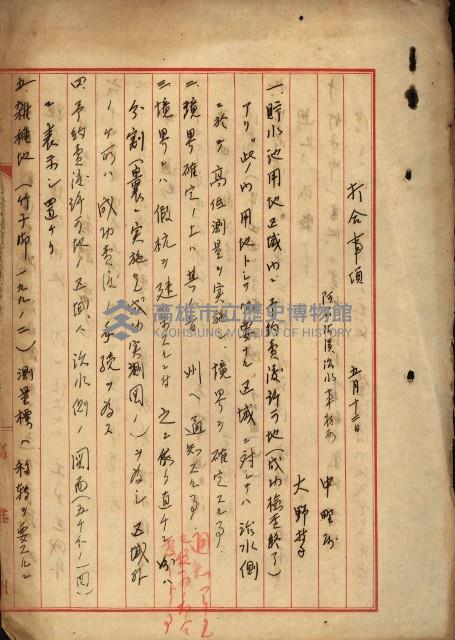 打合事項
五月十二日
阿公店溪治水事務所
中野
大野技手
一、貯水池用地区域内ニ予約売渡許可地(成功検査終了)
アリ。此ノ内用地トシテ必要ナル区域ニ対シテハ治水側
ニ於テ高低測量ヲ実施シ境界ヲ確定スル事
二、境界確定ノ上ハ其ノ旨州ヘ通知スル事
三、境界ニハ仮杭ヲ建
分割(曩ニ実施セル成功実測図ノ)ヲ為シ区域外
ノケ所ハ成功売渡ノ手続ヲ為ス
四、予約売渡許可地ノ区域ハ治水側ノ図面(五ケ
ニ表示シ置ケリ
五、雑種地(竹子脚一九九ノ二)測量標ハ移転ヲ要スルニ
高雄市立歷史博物館
KAOHSIUNG MUSEUM OF HISTORY
高雄州